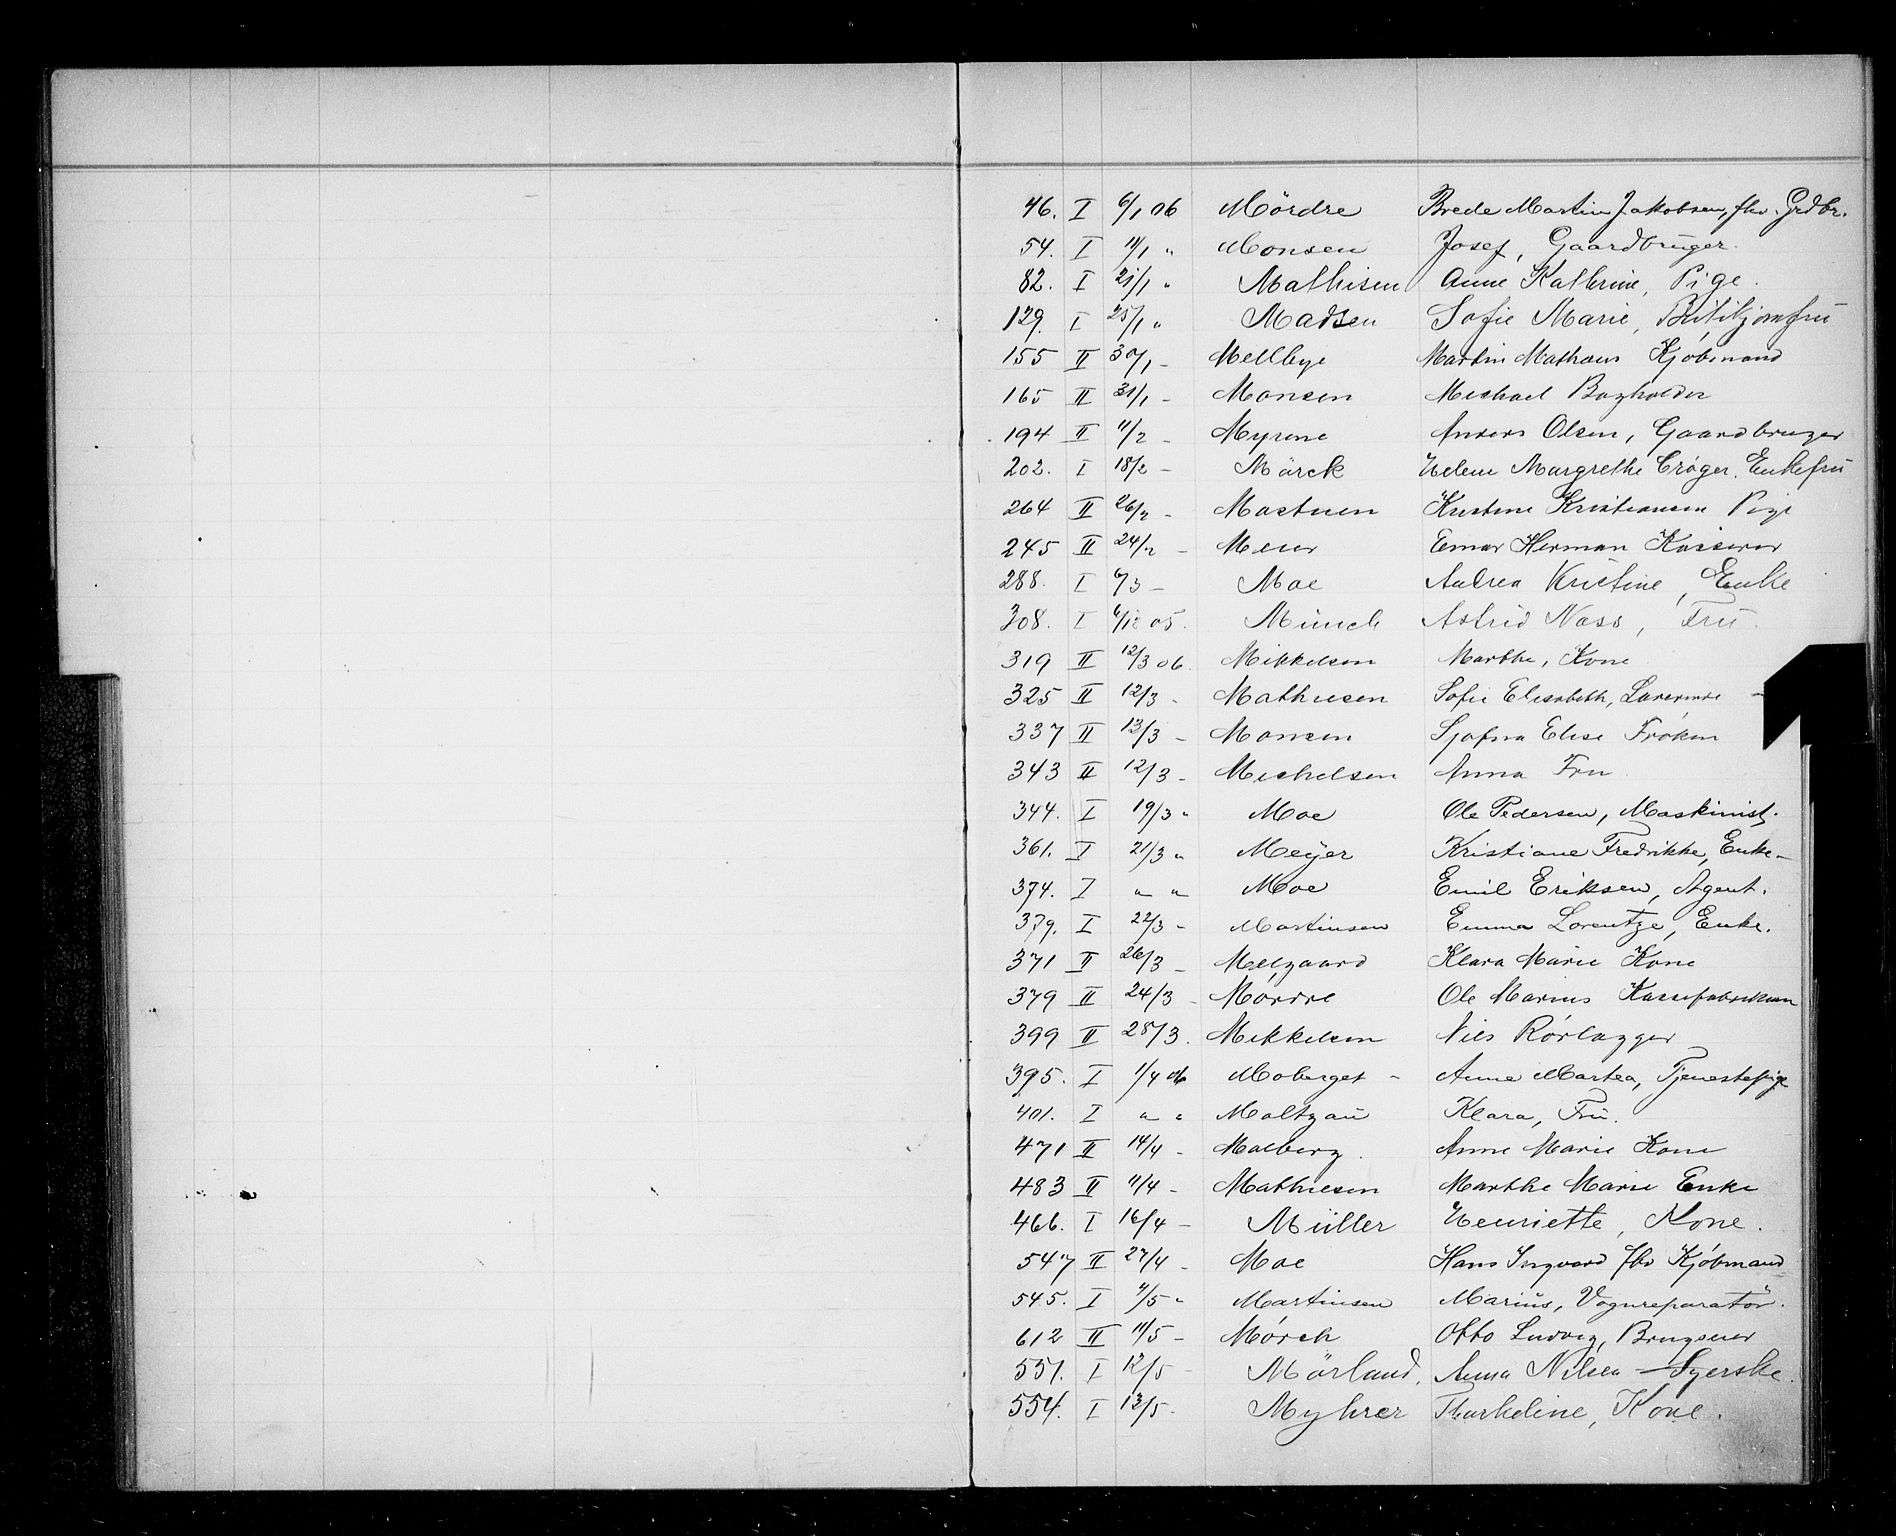 46. I 6/1 06 Mördre Brede Martin Jakobsen, fhv. Grdbr.
54. I 11/1 " Monsen Josef, Gaardbruger.
82. I 21/1 " Mathisen Anne Kathrine, Pige.
129. I 25/1 " Madsen Sofie Marie, Butikjomfru
155 II 30/1 - Mellbye Martin Mathæus Kjøbmand
165 II 31/1 - Monsen Michael Bogholder
194 II 11/2 - Myrene Anders Olsen, Gaardbruger
202. I 18/2 - Mörck Helene Margrethe Crøger. Enkefru
264 II 26/2 - Mostuen Kristine Kristiansen Pige
245 II 24/2 - Meier Einar Herman Kasserer
288. I 6/3 - Moe Andrea Kristine, Enke
308. I 6/12 05. Münch Astrid Næss, Fru.
319 II 12/3 06. Mikkelsen Marthe, Kone
325 II 12/3 - Mathiesen Sofie Elisabeth, Lærerinde -
337 II 13/3 - Monsen Sjofna Elise Frøken
343 II 12/3 - Michelsen Anna Fru
344. I 19/3 " Moe Ole Pedersen, Maskinist.
361. I 21/3 " Meyer Kristiane Fredrikke, Enke -
374. I " " Moe Emil Eriksen, Agent.
379. I 22/3 - Martinsen Emma Lorentze, Enke.
371 II 26/3 - Melgaard Klara Marie Kone
379 II 24/3 - Mordre Ole Marius Kassefabrikan
399 II 28/3. Mikkelsen Nils Rørlægger
395. I 1/4 06 Moberget - Anne Martea, Tjenestepige
401. I " " Moltzau Klara, Fru.
471 II 14/4 - Moeberg. Anne Marie Kone
483 II 11/4 - Mathiesen Marthe Marie Enke
466. I 16/4 - Müller Henriette, Kone.
547 II 27/4 - Moe Hans Ingvard fhv Kjøbmand
545. I 11/5 " Martinsen Marius, Vognreparatör.
612 II 11/5 - Mørch Otto Ludvig, Brugseier
551. I 12/5 - Mörland, Anna Nilsea - Syerske.
554. I 13/5. Myhrer Thorkeline, Kone.